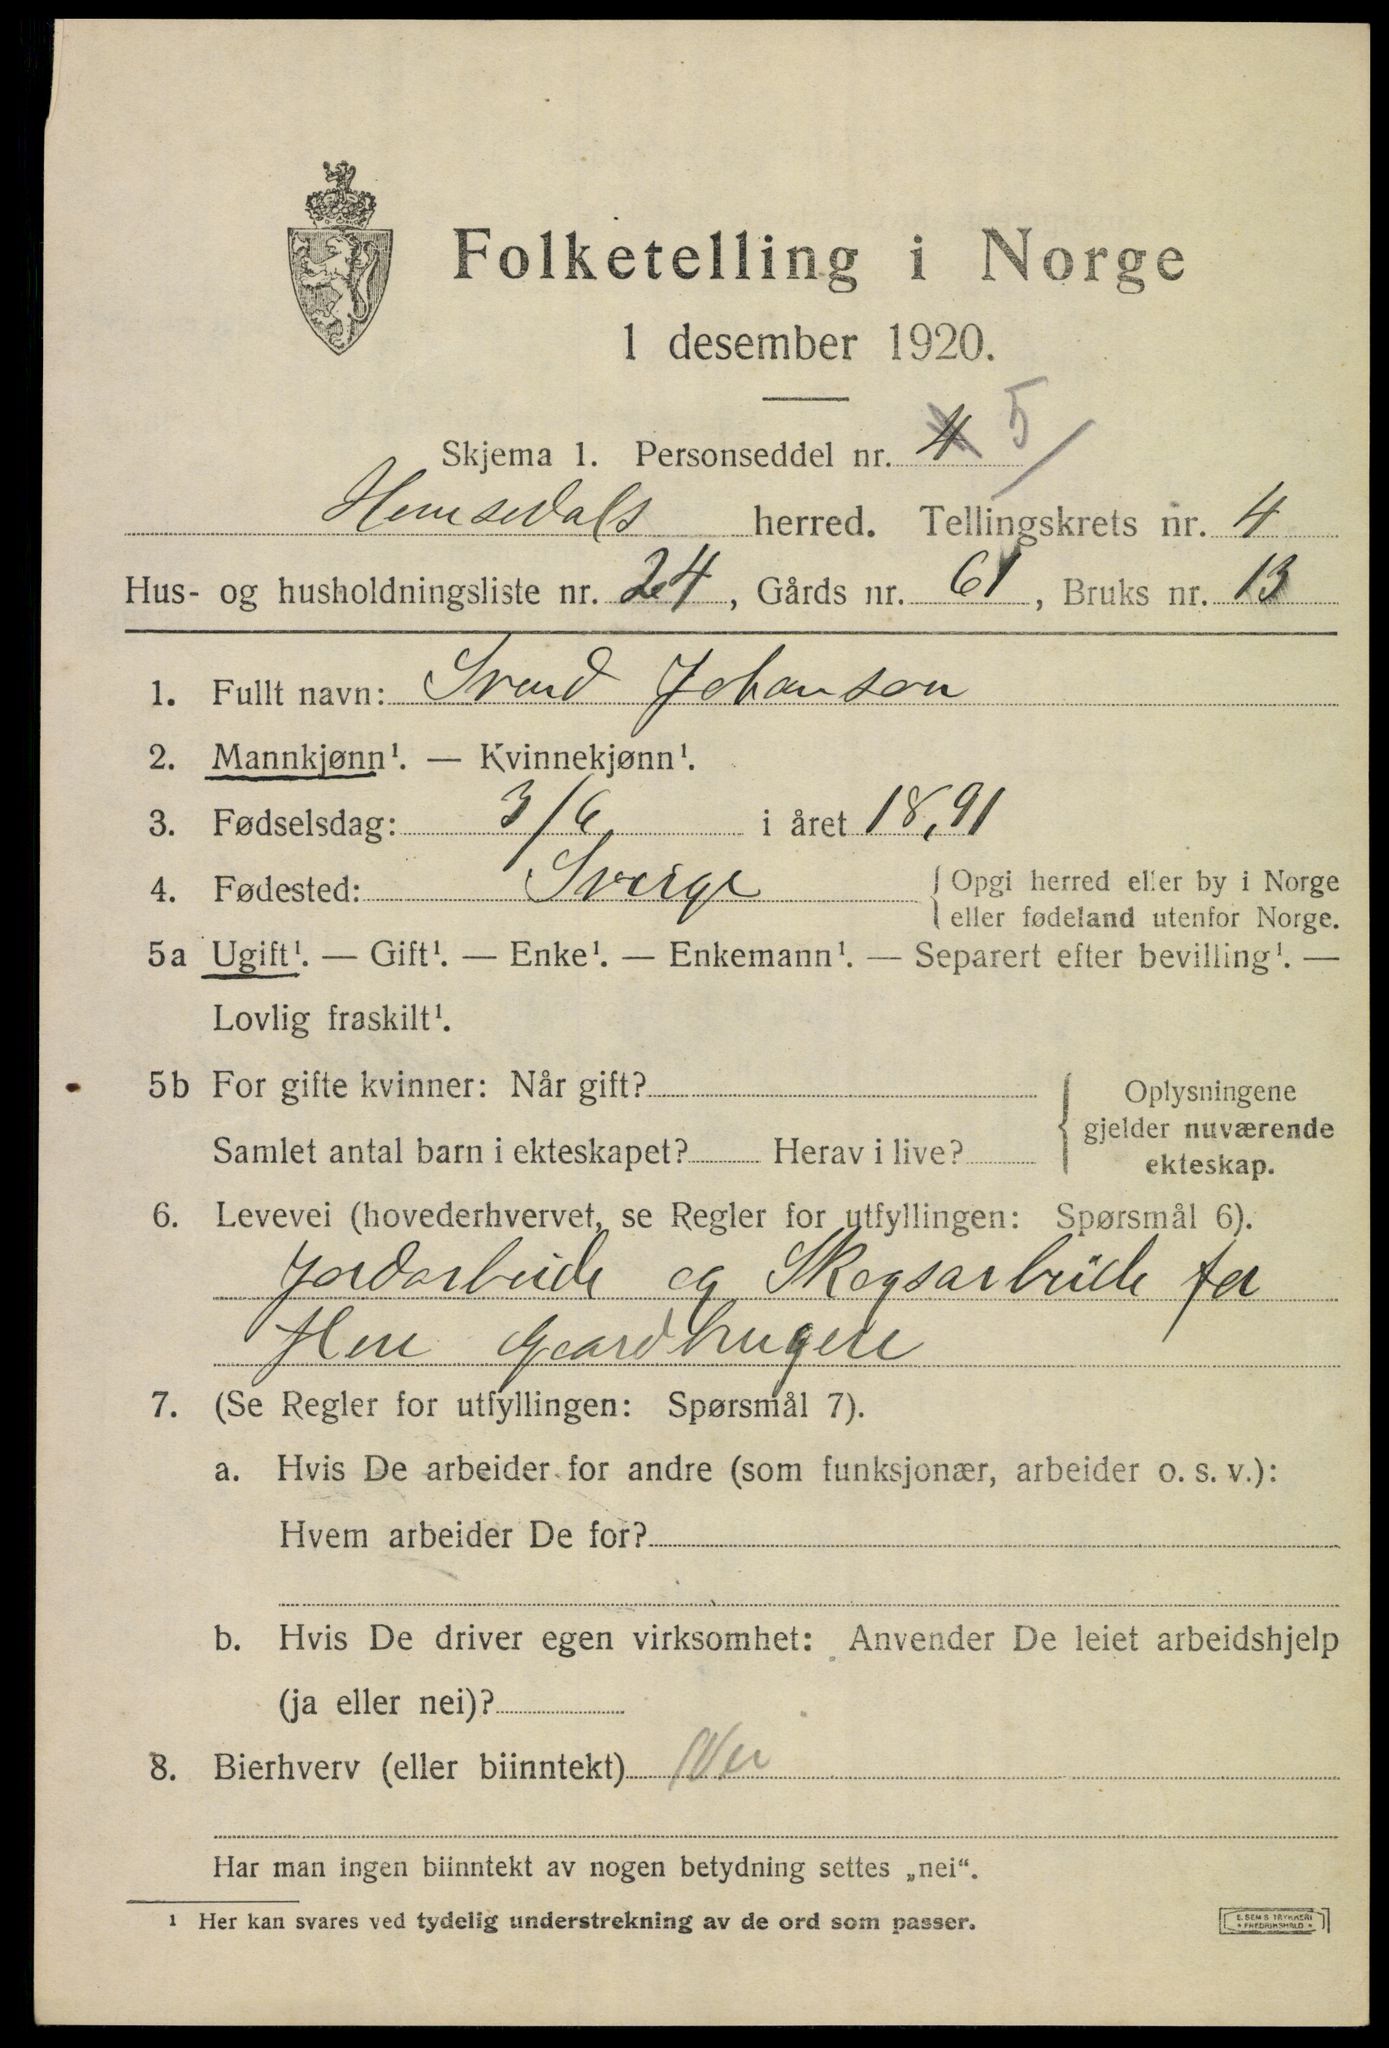 Folketelling i Norge
1 desember 1920.
Skjema 1. Personseddel nr. 4 5
Hemsedals herred. Tellingskrets nr. 4
Hus- og husholdningsliste nr. 24, Gårds nr. 61, Bruks nr. 13
1. Fullt navn: Svend Johanson
2. Mannkjønn¹. — Kvinnekjønn¹.
3. Fødselsdag: 3/6 i året 18,91
4. Fødested: Sverige { Opgi herred eller by i Norge
eller fødeland utenfor Norge.
5a Ugift¹. — Gift¹. — Enke¹. — Enkemann¹. — Separert efter bevilling¹. —
Lovlig fraskilt¹.
5b For gifte kvinner: Når gift? { Oplysningene
gjelder nuværende
Samlet antal barn i ekteskapet? Herav i live?
ekteskap.
6. Levevei (hovederhvervet, se Regler for utfyllingen: Spørsmål 6).
Jordarbeide og Skogsarbeide for
flere Gaardbrugere
7. (Se Regler for utfyllingen: Spørsmål 7).
a. Hvis De arbeider for andre (som funksjonær, arbeider o. s. v.):
Hvem arbeider De for?
b. Hvis De driver egen virksomhet: Anvender De leiet arbeidshjelp
(ja eller nei)?
8. Bierhverv (eller biinntekt) Nei
Har man ingen biinntekt av nogen betydning settes „nei“.
¹ Her kan svares ved tydelig understrekning av de ord som passer.
E. SEM'S TRYKKERI
* FREDRIKSHALD *